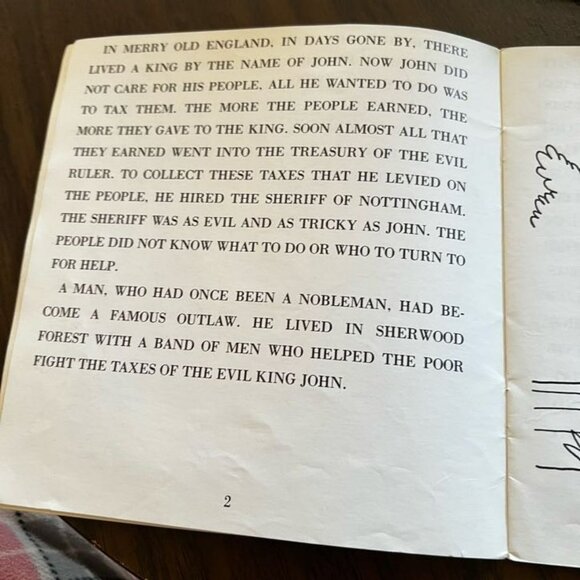 IN MERRY OLD ENGLAND, IN DAYS GONE BY, THERE
LIVED A KING BY THE NAME OF JOHN. NOW JOHN DID
NOT CARE FOR HIS PEOPLE. ALL HE WANTED TO DO WAS
TO TAX THEM. THE MORE THE PEOPLE EARNED, THE
MORE THEY GAVE TO THE KING. SOON ALMOST ALL THAT
THEY EARNED WENT INTO THE TREASURY OF THE EVIL
RULER. TO COLLECT THESE TAXES THAT HE LEVIED ON
THE PEOPLE, HE HIRED THE SHERIFF OF NOTTINGHAM.
THE SHERIFF WAS AS EVIL AND AS TRICKY AS JOHN. THE
PEOPLE DID NOT KNOW WHAT TO DO OR WHO TO TURN TO
FOR HELP.
A MAN, WHO HAD ONCE BEEN A NOBLEMAN, HAD BE-
COME A FAMOUS OUTLAW. HE LIVED IN SHERWOOD
FOREST WITH A BAND OF MEN WHO HELPED THE POOR
FIGHT THE TAXES OF THE EVIL KING JOHN.
2